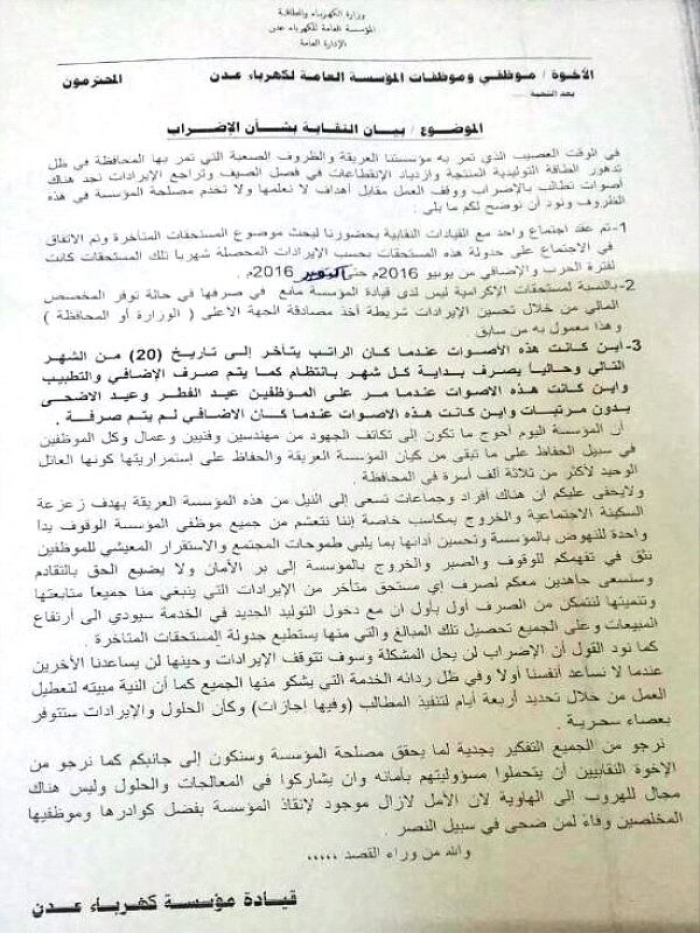 وزارة الكهرباء والطاقة
المؤسسة العامة للكهرباء عدن
الإدارة العامة
الأخوة / موظفي وموظفات المؤسسة العامة لكهرباء عدن المحترمون
بعد التحية .....
الموضوع / بيان النقابة بشأن الإضراب
في الوقت العصيب الذي تمر به مؤسستنا العريقة والظروف الصعبة التي تمر بها المحافظة في ظل
تدهور الطاقة التوليدية المنتجة وازدياد الإنقطاعات في فصل الصيف وتراجع الإيرادات نجد هناك
أصوات تطالب بالإضراب ووقف العمل مقابل أهداف لا نعلمها ولا تخدم مصلحة المؤسسة في هذه
الظروف ونود أن نوضح لكم ما يلي :
1- تم عقد اجتماع واحد مع القيادات النقابية بحضورنا لبحث موضوع المستحقات المتأخرة وتم الاتفاق
في الاجتماع على جدولة هذه المستحقات بحسب الإيرادات المحصلة شهريا تلك المستحقات كانت
لفترة الحرب والإضافي من يونيو 2016م حتى 2016م .
2- بالنسبة لمستحقات الإكرامية ليس لدى قيادة المؤسسة مانع في صرفها في حالة توفر المخصص
المالي من خلال تحسين الإيرادات شريطة أخذ مصادقة الجهة الاعلى ( الوزارة أو المحافظة )
وهذا معمول به من سابق .
3- أين كانت هذه الأصوات عندما كان الراتب يتأخر إلى تاريخ (20) من الشهر
التالي وحالياً يصرف بداية كل شهر بانتظام كما يتم صرف الإضافي والتطبيب
واين كانت هذه الاصوات عندما مر على المؤظفين عيد الفطر وعيد الاضحى
بدون مرتبات واين كانت هذه الاصوات عندما كان الاضافي لم يتم صرفة .
أن المؤسسة اليوم أحوج ما تكون إلى تكاتف الجهود من مهندسين وفنيين وعمال وكل الموظفين
في سبيل الحفاظ على ما تبقى من كيان المؤسسة العريقة والحفاظ على إستمراريتها كونها العائل
الوحيد لأكثر من ثلاثة ألف أسرة في المحافظة .
ولايخفى عليكم أن هناك أفراد وجماعات تسعى إلى النيل من هذه المؤسسة العريقة بهدف زعزعة
السكينة الاجتماعية والخروج بمكاسب خاصة إننا نتعشم من جميع موظفي المؤسسة الوقوف يداً
واحدة للنهوض بالمؤسسة وتحسين أدائها بما يلبي طموحات المجتمع والاستقرار المعيشي للموظفين
نثق في تفهمكم للوقوف والصبر والخروج بالمؤسسة إلى بر الأمان ولا يضيع الحق بالتقادم
وسنسعى جاهدين معكم لصرف إي مستحق متأخر من الإيرادات التي ينبغي منا جميعاً متابعتها
وتنميتها لنتمكن من الصرف أول بأول ان مع دخول التوليد الجديد في الخدمة سيودي الى أرتفاع
المبيعات وعلى الجميع تحصيل تلك المبالغ والتي منها يستطيع جدولة المستحقات المتاخرة .
كما نود القول أن الإضراب لن يحل المشكلة وسوف تتوقف الإيرادات وحينها لن يساعدنا الأخرين
عندما لا نساعد أنفسنا أولا وفي ظل ردانه الخدمة التي يشكو منها الجميع كما أن النية مبيته لتعطيل
العمل من خلال تحديد أربعة أيام لتنفيذ المطالب (وفيها إجازات) وكأن الحلول والإيرادات ستتوفر
بعصاء سحرية .
نرجو من الجميع التفكير بجدية لما يحقق مصلحة المؤسسة وسنكون إلى جانبكم كما نرجو من
الإخوة النقابيين أن يتحملوا مسؤوليتهم بأمانه وان يشاركوا في المعالجات والحلول وليس هناك
مجال للهروب الى الهاوية لان الأمل لازال موجود لإنقاذ المؤسسة بفضل كوادرها وموظفيها
المخلصين وفاءً لمن ضحى في سبيل النصر .
والله من وراء القصد ,,,,,
قيادة مؤسسة كهرباء عدن